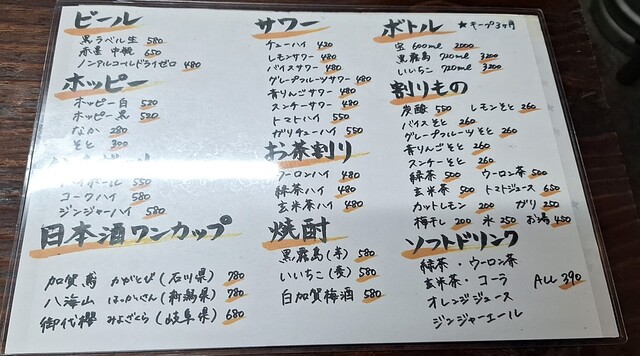 ビール
黒ラベル生 580
赤星 中瓶 650
ノンアルコールドライゼロ 480
ホッピー
ホッピー白 520
ホッピー黒 520
なか 280
そと 300
ハイボール 550
コークハイ 580
ジンジャーハイ 580
日本酒ワンカップ
加賀鳶 かがとび(石川県) 780
八海山 はっかいさん(新潟県) 780
御代櫻 みよざくら(岐阜県) 680
サワー
チューハイ 420
レモンサワー 480
バイスサワー 480
グレープフルーツサワー 480
青りんごサワー 480
スンチーサワー 480
トマトハイ 550
ガリチューハイ 550
お茶割り
ウーロンハイ 480
緑茶ハイ 480
玄米茶ハイ 480
焼酎
黒霧島(芋) 580
いいちこ(麦) 580
白加賀梅酒 580
ボトル ★キープ3ヶ月
宝 600ml 2000
黒霧島 720ml 3200
いいちこ 720ml 3200
割りもの
炭酸 550 レモンそと 260
バイスそと 260
グレープフルーツそと 260
青りんごそと 260
スンチーそと 260
緑茶 500 ウーロン茶 500
玄米茶 500 トマトジュース 650
カットレモン 200 ガリ 250
梅干し 200 氷 250 お湯 450
ソフトドリンク
緑茶・ウーロン茶
玄米茶・コーラ ALL 390
オレンジジュース
ジンジャーエール